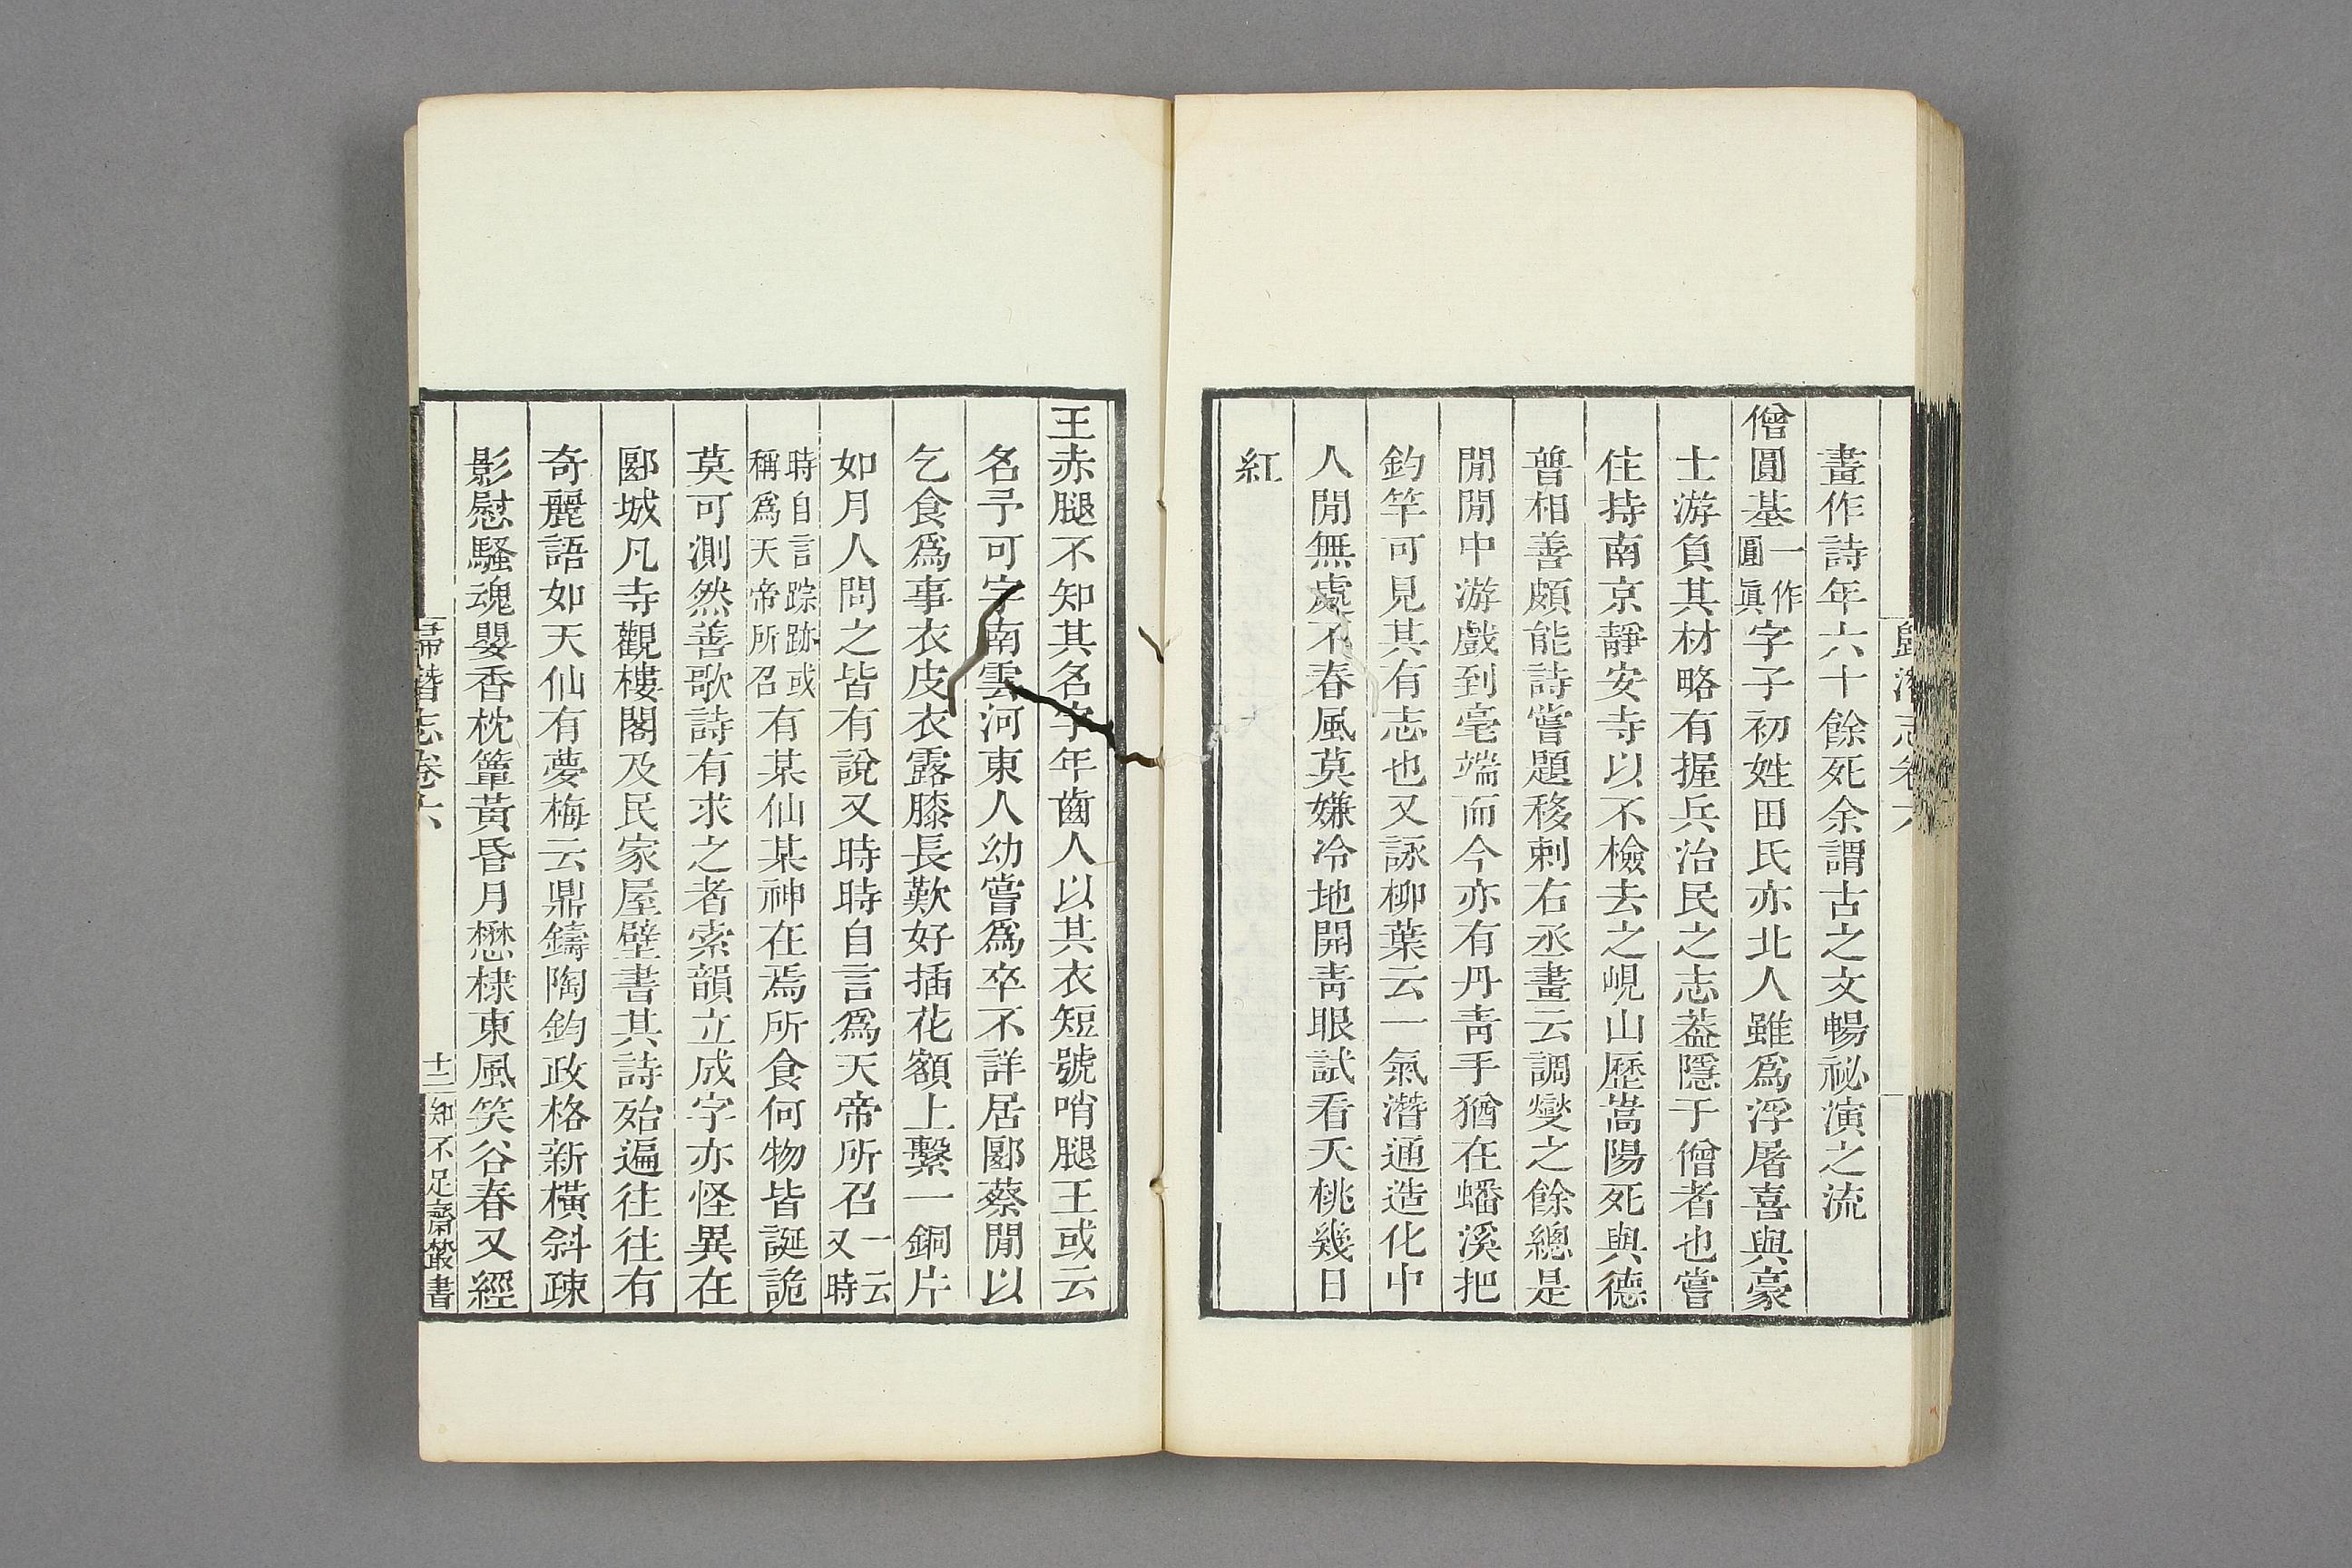 歸潛志卷六
畫作詩年六十餘死余謂古之文暢祕演之流
僧圓基一作圓眞字子初姓田氏亦北人雖爲浮屠喜與豪
士游負其材略有握兵治民之志葢隱于僧者也嘗
住持南京靜安寺以不檢去之峴山歷嵩陽死與德
普相善頗能詩嘗題移剌右丞畫云調燮之餘總是
閒閒中游戲到毫端而今亦有丹靑手猶在蟠溪把
釣竿可見其有志也又詠柳葉云一氣潛通造化中
人閒無處不春風莫嫌冷地開靑眼試看夭桃幾日
紅
王赤腿不知其名字年齒人以其衣短號哨腿王或云
名予可字南雲河東人幼嘗爲卒不詳居郾蔡閒以
乞食爲事衣皮衣露膝長歎好插花額上繫一銅片
如月人問之皆有說又時時自言爲天帝所召一云又時
時自言踪跡或稱爲天帝所召有某仙某神在焉所食何物皆誕詭
莫可測然善歌詩有求之者索韻立成字亦怪異在
郾城凡寺觀樓閣及民家屋壁書其詩殆遍往往有
奇麗語如天仙有夢梅云鼎鑄陶鈞政格新橫斜疎
影慰騷魂嬰香枕簟黃昏月懋棣東風笑谷春又經
歸潛志卷六 十二 知不足齋叢書